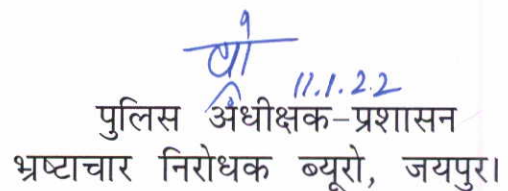 11.1.22
पुलिस अधीक्षक-प्रशासन
भ्रष्टाचार निरोधक ब्यूरो, जयपुर।